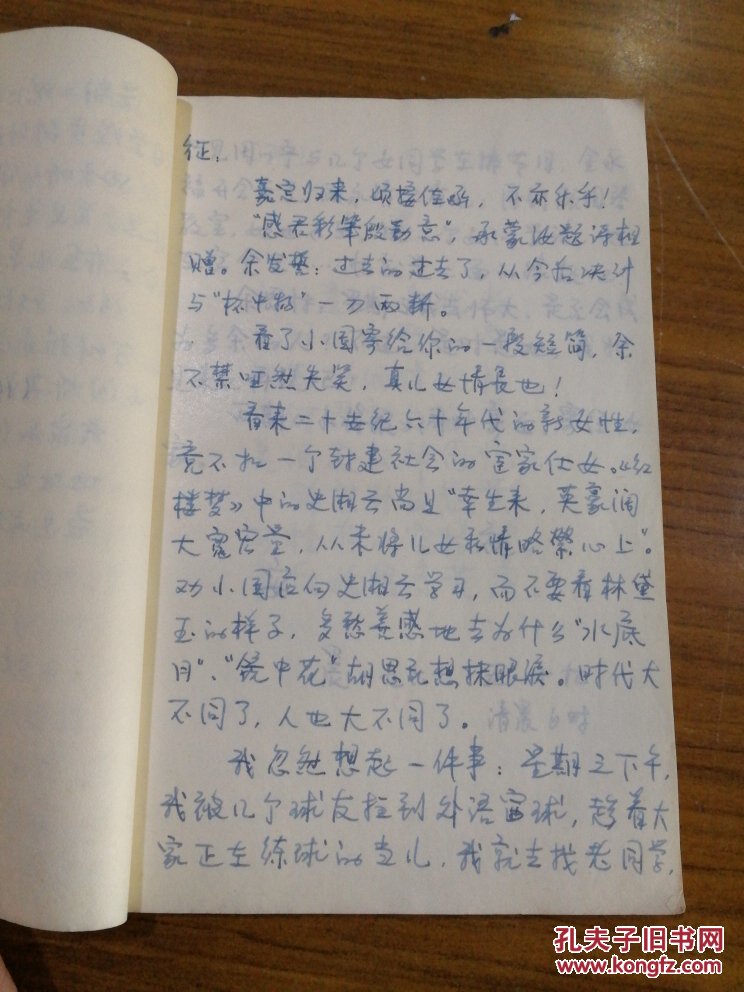 征:
嘉定归来，顷接佳函，不亦乐乎！
“感君彩笔殷勤意”，承蒙汝题诗相
赠。余发誓：过去的过去了，从今后决计
与“杯中物”一刀两断。
看了小国寄给你的一般短简，余
不禁哑然失笑，真儿女情长也！
看来二十世纪六十年代的新女性，
竟不知一个封建社会的宦家仕女。《红
楼梦》中的史湘云尚且“幸生来，英豪阔
大宽宏量，从未将儿女私情略萦心上”。
劝小国应向史湘云学习，而不要看林黛
玉的样子，多愁善感地去为什么“水底
月”、“镜中花”胡思乱想抹眼泪。时代大
不同了，人也大不同了。
我忽然想起一件事：星期三下午，
我被几个球友拉到外语赛球，趁着大
家正在练球的当儿，我就去找老同学，
孔夫子旧书网
www.kongfz.com